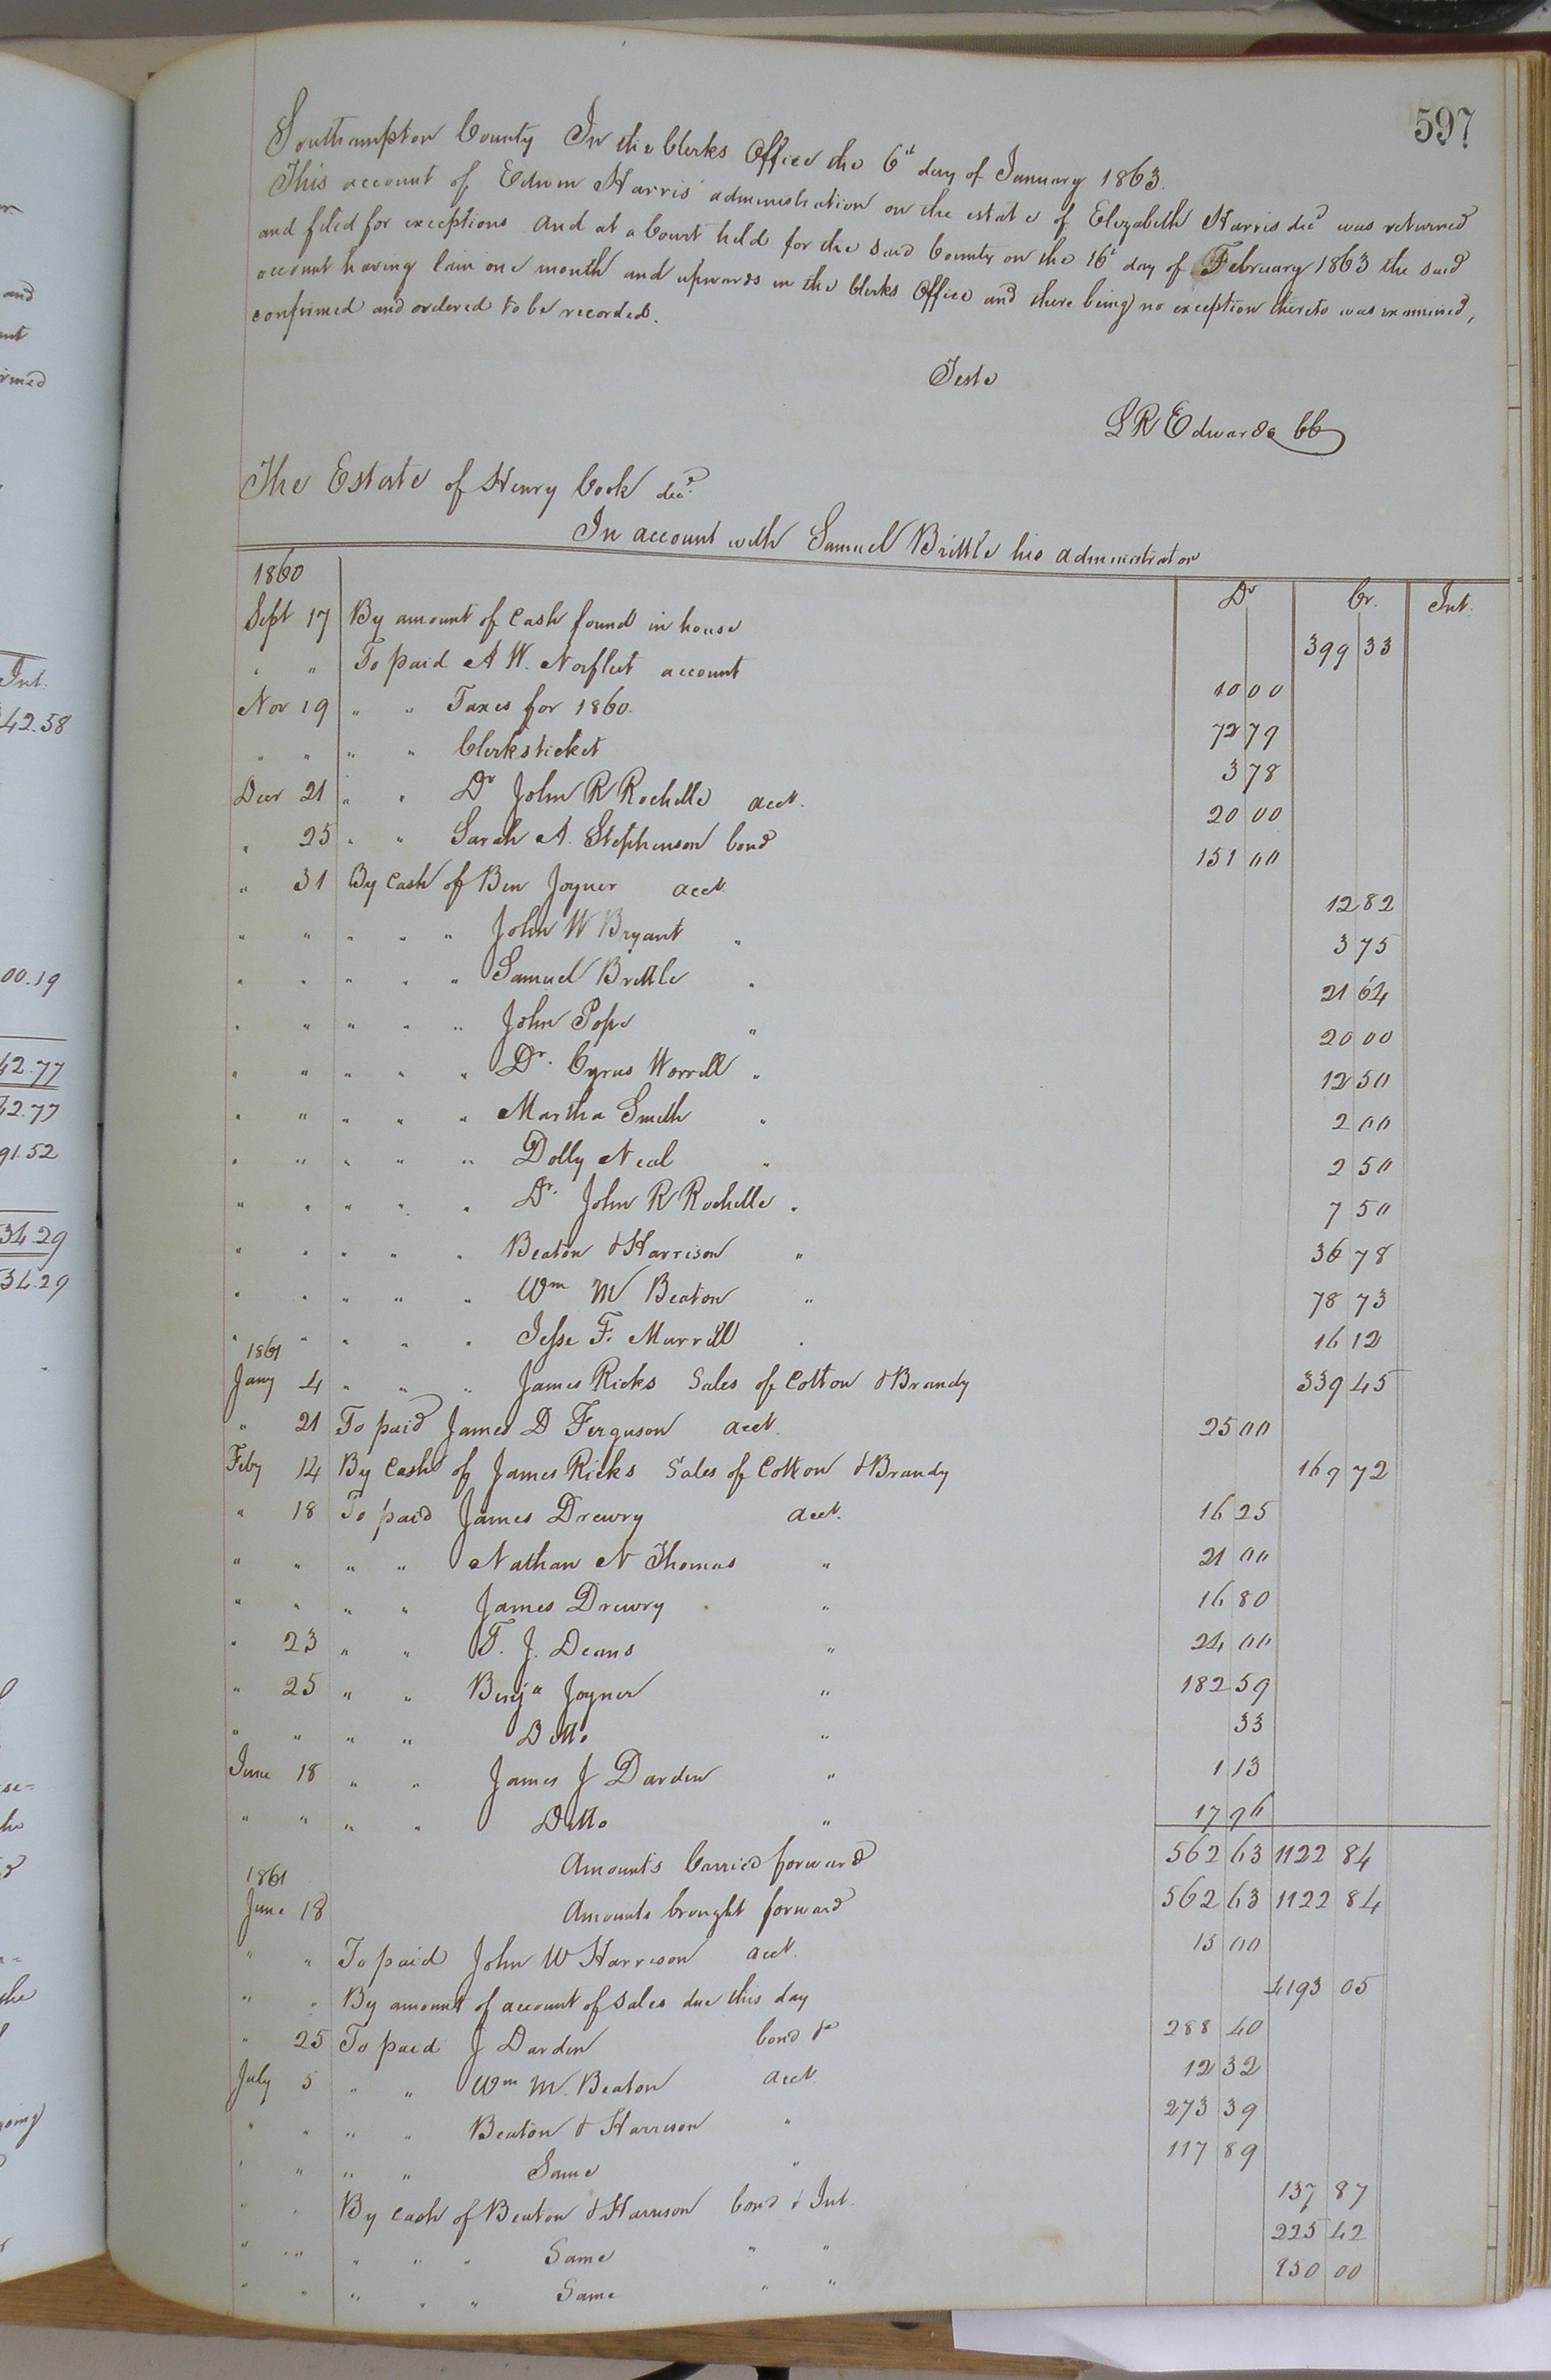 597
Southampton County In the Clerks Office the 6th day of January 1863.
This account of Edwin Harris' administration on the estate of Elizabeth Harris decd was returned
and filed for exceptions And at a Court held for the said County on the 16t day of February 1863 the said
account having lain one month and upwards in the Clerks Office and there being no exception thereto was examined,
confirmed and ordered to be recorded.
Teste
L R Edwards CC
The Estate of Henry Cook decd
In account with Samuel Brittle his administrator
1860 Dr Cr. Int.
Sept 17 By amount of Cash found in house 399 33
" " To paid A W. Norfleet account 10 00
Nov 19 " " Taxes for 1860. 72 79
" " " " Clerksticket 3 78
Decr 21 " " Dr John R Rochelle acct. 20 00
" 25 " " Sarah A. Stephenson bond 151 00
" 31 By Cash of Ben Joyner acct. 12 82
" " " " " John W Bryant " 3 75
" " " " " Samuel Brittle " 21 64
" " " " " John Pope " 20 00
" " " " " Dr. Cyrus Worrell " 12 50
" " " " " Martha Smith " 2 00
" " " " " Dolly Neal " 2 50
" " " " " Dr. John R Rochelle " 7 50
" " " " " Beaton & Harrison " 36 78
" " " " " Wm M Beaton " 78 73
" " " " " Jesse F. Murrill " 16 12
1861
Jany 4 " " " James Ricks Sales of Cotton & Brandy 339 45
" 21 To paid James D Ferguson acct. 25 00
Feby 14 By Cash of James Ricks Sales of Cotton & Brandy 169 72
" 18 To paid James Drewry acct. 16 25
" " " " Nathan N Thomas " 21 00
" " " " James Drewry " 16 80
" 23 " " T. J. Deans " 24 00
" 25 " " Benja Joyner " 182 59
" " " " Ditto " 33
June 18 " " James J Darden " 1 13
" " " " Ditto " 17 96
Amounts Carried forward 562 63 1122 84
1861
June 18 Amounts brought forward 562 63 1122 84
" " To paid John W Harrison acct. 15 00
" " By amount of account of sales due this day 4193 05
" 25 To paid J Darden bond &c 288 40
July 5 " " Wm M. Beaton acct. 12 32
" " " " Beaton & Harrison " 273 39
" " " " Same " 117 89
" " By cash of Beaton & Harrison bond & Int. 137 87
" " " " " Same " " 225 42
" " " " " Same " " 950 00
and
Int.
42.58
00.19
42.77
42.77
91.52
34.29
34.29